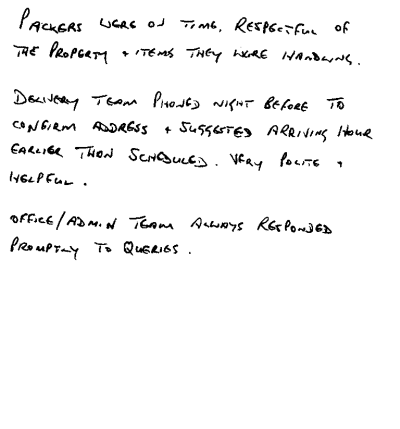 PACKERS WERE ON TIME. RESPECTFUL OF
THE PROPERTY + ITEMS THEY WERE HANDLING.
DELIVERY TEAM PHONED NIGHT BEFORE TO
CONFIRM ADDRESS + SUGGESTED ARRIVING HOUR
EARLIER THAN SCHEDULED. VERY POLITE +
HELPFUL.
OFFICE/ADMIN TEAM ALWAYS RESPONDED
PROMPTLY TO QUERIES.